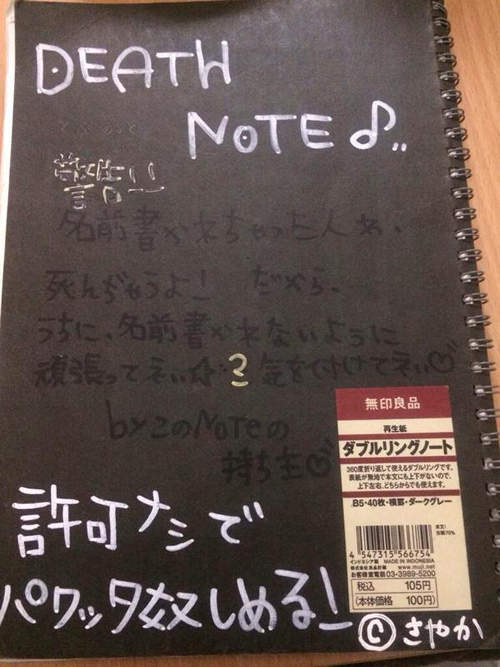 DEATH
NOTE♪..
警告!!
名前書かれちゃった人わ、
死んぢゃうよ! だから、
うちに、名前書かれないように
頑張ってネぃ☆ 2 気をつけてネぃ♡
byこのNOTEの
持ち主♡
無印良品
再生紙
ダブルリングノート
360度折り返して使えるダブルリングです。
表紙が無地で本文にも上下がないので、
上下左右、どちらからでも使えます。
B5・40枚・横罫・ダークグレー
4 547315 566754
インドネシア製 MADE IN INDONESIA
株式会社良品計画 www.muji.net
お客様室電話03-3989-5200
税込 105円
(本体価格 100円)
許可ナシで
パクッタ奴しめる!
Ⓒさやか